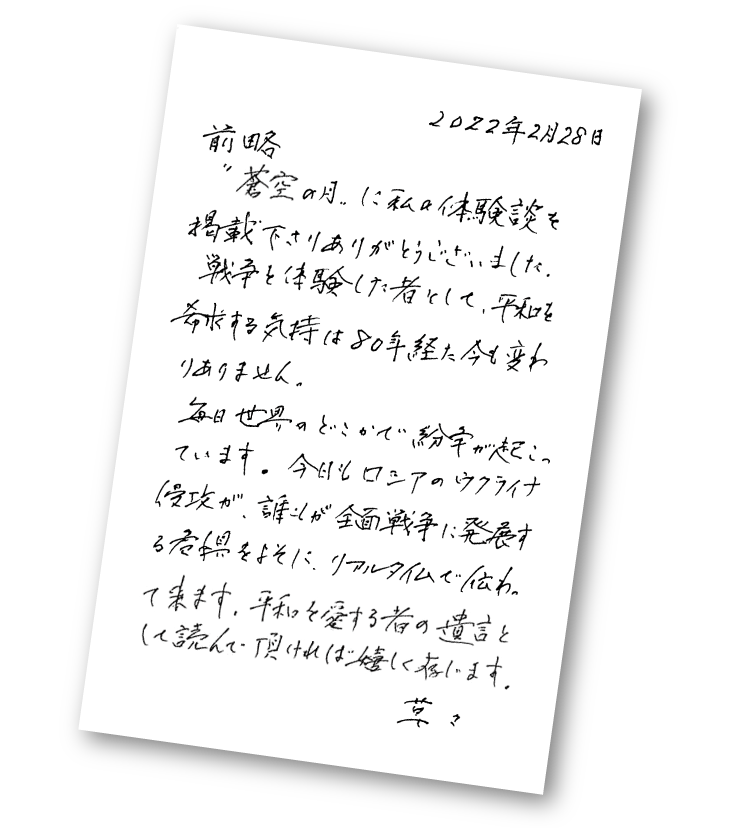 2022年2月28日
前略
"蒼空の月"に私の体験談を
掲載下さりありがとうございました.
戦争を体験した者として、平和を
希求する気持は80年経た今も変わ
りありません。
毎日世界のどこかで紛争が起こっ
ています。今日もロシアのウクライナ
侵攻が、誰もが全面戦争に発展す
る危惧をよそに、リアルタイムで伝わっ
て来ます。平和を愛する者の遺言と
して読んで頂ければ嬉しく存じます。
草々